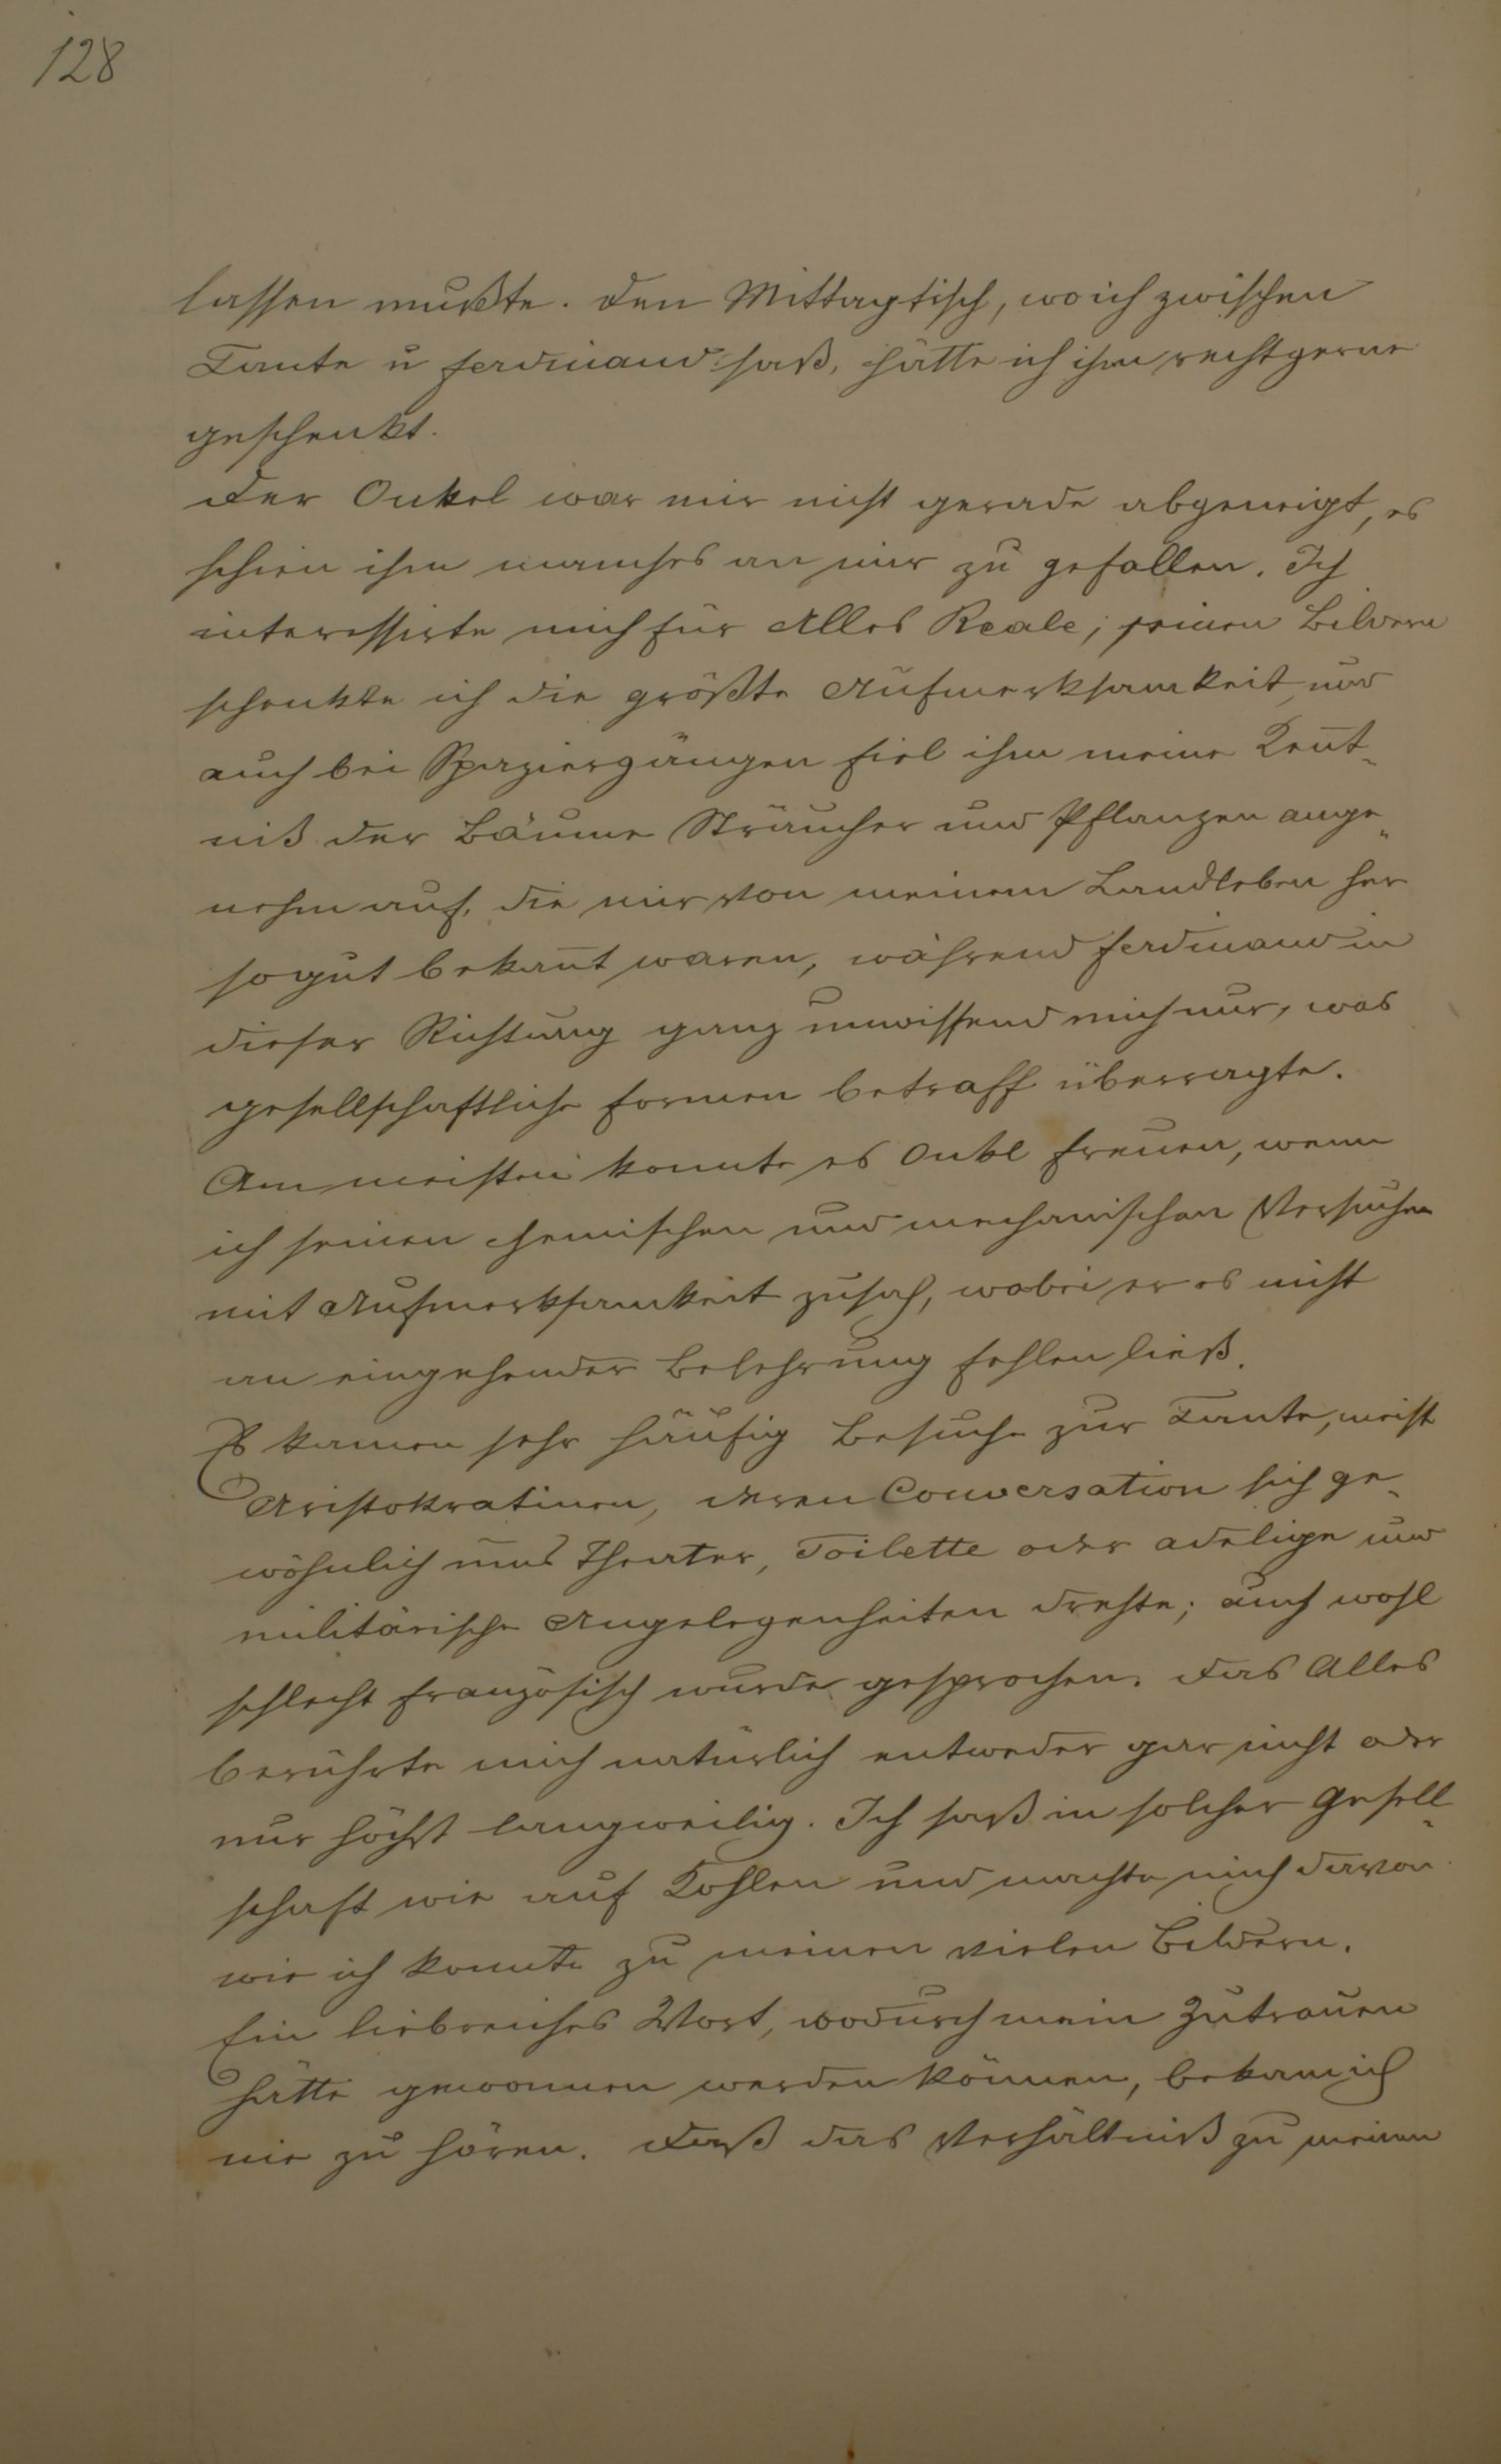 128
lassen mußte. Den Mittagtisch, wo ich zwischen
Tante u Ferdinand saß, hätte ich ihm recht gerne
geschenkt.
Der Onkel war mir nicht gerade abgeneigt, es
schien ihm manches an mir zu gefallen. Ich
interessirte mich für Alles Reale; seinen Bildern
schenkte ich die größte Aufmerksamkeit, und
auch bei Spaziergängen fiel ihm meine Kent̄-
niß der Bäume Sträucher und Pflanzen ange-
nehm auf, die mir von meinem Landleben her
so gut bekan̄t waren, während Ferdinand in
dieser Richtung ganz unwissend mich nur, was
gesellschaftliche Formen betraff überragte.
Am meisten konnte es Onkl freuen, wenn
ich seinen chemischen und mechanischen Versuchen
mit Aufmerksamkeit zusah, wobei er es nicht
an eingehender Belehrung fehlen ließ.
Es kamen sehr häufig Besuche zur Tante, meist
Aristokratinen, deren Conversation sich ge-
wöhnlich ums Theater, Toilette oder adelige und
militärische Angelegenheiten drehte; auch wohl
schlecht französisch wurde gesprochen. Das Alles
berührte mich natürlich entweder gar nicht oder
nur höchst langweilig. Ich saß in solcher Gesell-
schaft wie auf Kohlen und machte mich davon
wie ich konnte zu meinen vielen Bildern.
Ein liebreiches Wort, wodurch mein Zutrauen
hätte gewonnen werden können, bekam ich
nie zu hören. Daß das Verhältniß zu meinen